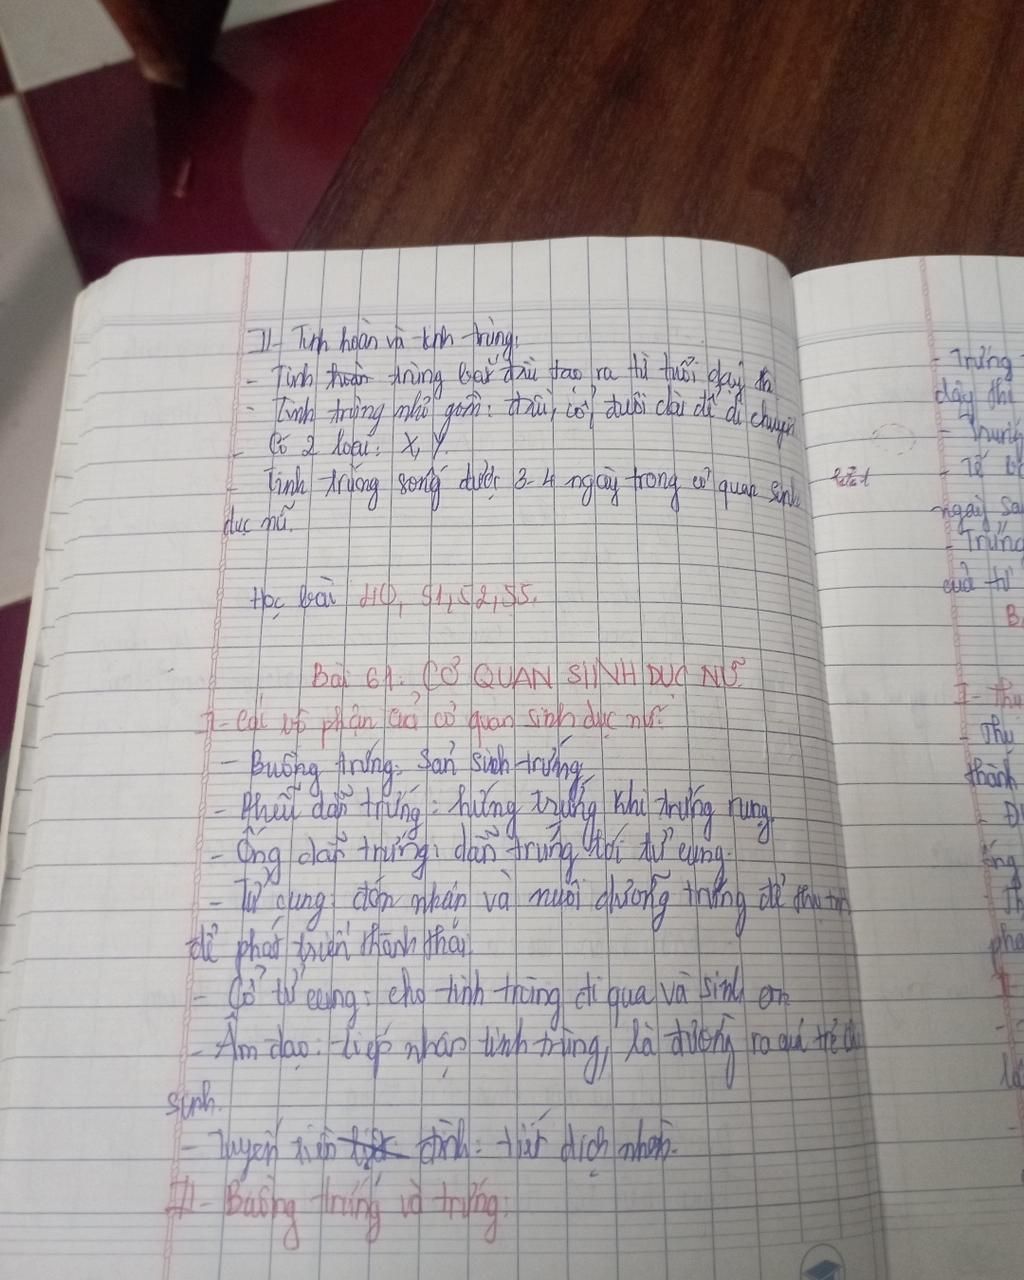 II- Tinh hoàn và tinh trùng:
- Tinh trùng bắt đầu tạo ra từ tuổi dậy thì
- Tinh trùng nhỏ gồm: đầu, cổ, đuôi dài để di chuyển
- Có 2 loại: X, Y.
- Tinh trùng sống được 3-4 ngày trong cơ quan sinh
dục nữ.
Học bài 40, 51, 52, 55.
Bài 61. CƠ QUAN SINH DỤC NỮ
I- Các bộ phận của cơ quan sinh dục nữ:
- Buồng trứng: Sản sinh trứng
- Phễu dẫn trứng: hứng trứng khi trứng rụng
- Ống dẫn trứng: dẫn trứng tới tử cung.
- Tử cung: đón nhận và nuôi dưỡng trứng đã thụ tinh
để phát triển thành thai.
- Cổ tử cung: cho tinh trùng đi qua và sinh con
- Âm đạo: tiếp nhận tinh trùng, là đường ra của trẻ
sinh.
- Tuyến tiền đình: tiết dịch nhờn.
II- Buồng trứng và trứng:
- Trứng
dậy thì
- Trứng
ngày sa
- Trứng
quả tr
B
I- Thụ
- Thụ
thành
ống
- Th